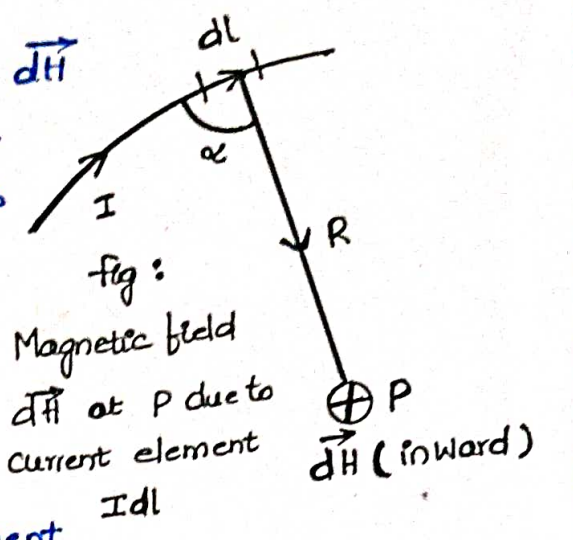 dl
dH
α
I
R
fig :
Magnetic field
dH at P due to
Current element
Idl
P
dH (inward)